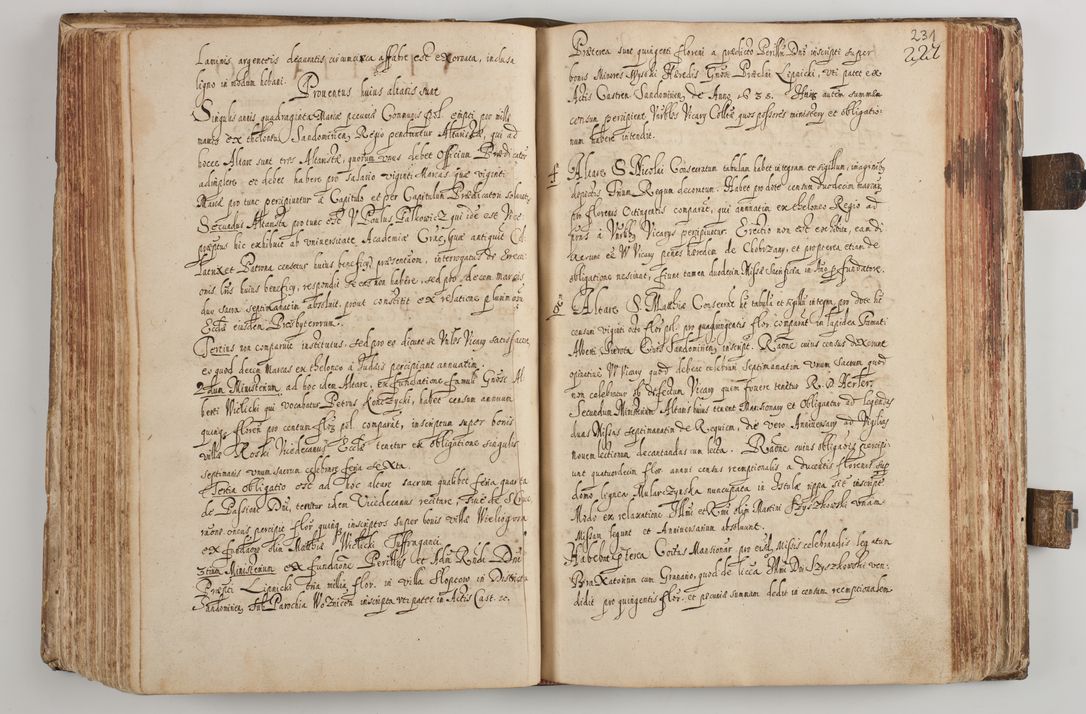 Laminis argenteis deauratis circumcirca affabre est exornata, inclusa
ligno in modum hebani.
Prouentus huius altaris sunt
Singulis annis quadraginta Marcæ pecuniæ Communis pol. empti per mille
marcis ex theloneo Sandomirien Regio penduntur Altaristæ, qui ad
hocce Altare sunt tres Altaristæ, quorum vnus debet Officium Prædicator
adimplere et debet habere pro Salario viginti Marcas quæ viginti
Marcæ pro tunc percipiuntur a Capitulo et per Capitulum Prædicatori soluuntur
Secundus Altarista pro tunc est V. Paulus Palkowicz qui idē est Vice
præptus hic exhibuit ab vniuersitate Academiæ Crac. quæ antiquit. Col
latrix et Patrona censetur huius beneficij præsentūon, interrogatus de Erecti
onis Lris huius beneficij, respondit se eas non habere, sed pro decem marcis
duo sacra septimanatim absoluit, prout constitit ex relatione plurimorū
Eccl. eiusdem Presbyterorum.
Tertius non comparuit institutus, sed pro eo dicunt se Vnbles Vicary satisfacere
eo quod decem Marcas ex theloneo a Judæis percipiant annuatim.
2dum Ministerium ad hoc idem Altare, ex fundatione famuli Gnosi Al
berti Wielicki qui vocabatur Petrus Korczycki, habet censum annuum
quinq. floren pro centum floꝫ pol. comparat, inscriptum super bonis
villæ Roski Vicedecanus Eccl. tenetur ex obligatione singulis
septimanis vnum sacrum celebrare feria sexta.
Tertia obligatio est ad hoc altare sacrum qualibet feria quarta
de Passione Dni, tenetur idem Vicedecanus recitare, siue de S. Cruce
ratione oneris percipit flor. quinq. inscriptos super bonis villæ Wielogora
ex fundaōne olim Matthiæ Wielicki Suffraganei.
3tium Ministerium ex fundaōne Perillris et Adm. Rndi Dni
Præpti Lipnicki tria millia flor. in villa Slopcow in Districtu
Sandomirien sub Parochia Wozniczen inscripta vti patet in Actis Cast. &c.
231
227
Præterea sunt quingenti floreni a prædicto Perillri Dno inscripti super
bonis Minores Wysoki Hæredis Gnosi Præclai Lipnicki, vti patet ex
Actis Castren Sandomirien de Anno 1638. Hunc autem summæ
censum percipient Vnbles Vicary Collæ quos possores ministery et obligatio-
num habere intendit.
f Altare S. Nicolai Consecratum tabulam habet integram et sigillum, imaginib.
depictis Trium Regum decoratum. Habet pro dote censum duodecim marcarū
pro florenis Octingentis comparatæ, qui annuatim ex theloneo Regio ad
præns à Vnblib. Vicarys percipiuntur. Erectio non est exhibita, eam di
xerunt esse VV Vicary penes hæredem de Chobrzany, et propterea etiam de
obligatione nesciunt, fiunt tamen duodecim Missæ Sacrificia in Ano p fundatore.
g Altare S. Matthiæ Consecrat. ht tabula et sigillū integra, pro dote ht
censum viginti octo flor pol. pro quadringentis flor. comparat in lapidea Famati
Alberti Piwota Ciuis Sandomirien inscript. Raōne cuius census dixerunt
opinatiue VV Vicary quod debeat celebrari septimanatim vnum Sacrum quod
non celebratur ob defectum Vicary quem fouere tenetur R. D. Hester.
Secundum Ministerium Altaris huius tenent Mansionary et Obligantur ad legendas
duas Missas septimanatim de Requiem, et vero Anniuersary ad Vigilias
nouem lectionum decantandas cum lecta. Raōne cuius obligaōis percipi-
unt quatuordecim flor. annui census reemptionalis a ducentis florenis sup
domo lignea Mularczynska nuncupata in Istulæ rippa sitæ inscripte
Modo ex relaxatione Illmi et Rmi olim Martini Szyszkowski vnam
Missam legunt et Anniuersarium absoluunt.
Habebant pterea Coētus Mansionar pro eisd. Missis celebrandis legatum
Braxatorium cum Granario, quod de licēa Illmi Dni Szyszkowski ven-
didit pro quingentis flor. et pecuniæ summam dedit in censum reemptionalem